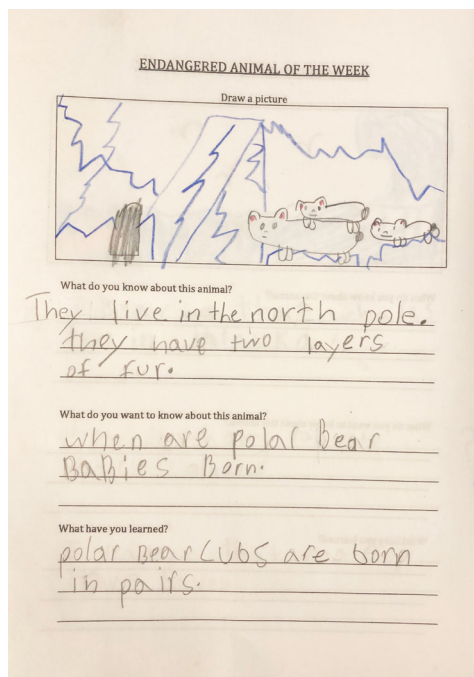 ENDANGERED ANIMAL OF THE WEEK
Draw a picture
What do you know about this animal?
They live in the north pole.
they have two layers
of fur.
What do you want to know about this animal?
when are polar Bear
BaBies Born.
What have you learned?
polar Bear Cubs are born
in pairs.